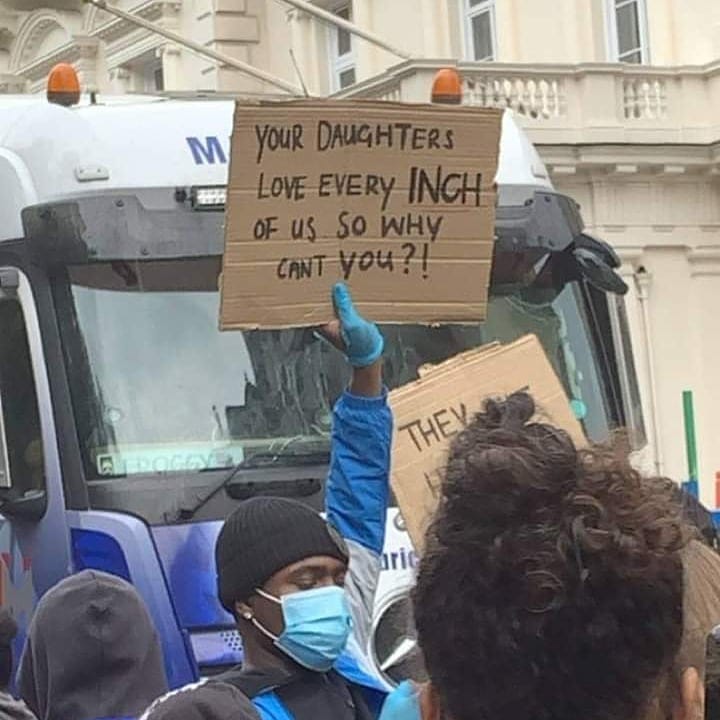 YOUR DAUGHTERS
LOVE EVERY INCH
OF US SO WHY
CANT YOU?!
M
FROGGY
THEY